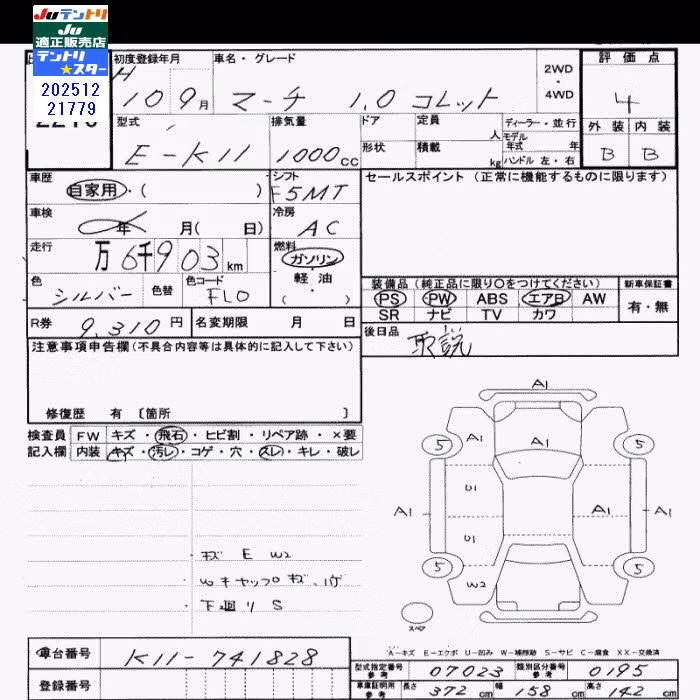 Juテントリ
Ju
適正販売店
テントリ
スター
202512
21779
初度登録年月
車名・グレード
2WD
・
4WD
評価点
H
10 9月
マーチ 1.0 コレット
4
型式
排気量
ドア
定員
人
ディーラー・並行
モデル
年式 年
外装 内装
E-K11
1000cc
形状
積載
kg
ハンドル 左・右
B B
車歴
自家用・( )
シフト
F5MT
セールスポイント (正常に機能するものに限ります)
車検
年 月( 日)
冷房
AC
走行
万 6千903 km
燃料
ガソリン
軽・油
( )
色
シルバー
色替
色コード
FL0
装備品 (純正品に限り○をつけてください)
新車保証書
PS PW ABS エアB AW
SR ナビ TV カワ
有・無
R券
9,310円
名変期限 月 日
後日品
取説
注意事項申告欄(不具合内容等は具体的に記入して下さい)
修復歴 有 〔箇所 〕
検査員
記入欄
FW キズ・飛石・ヒビ割・リペア跡・×要
内装 キズ・汚レ・コゲ・穴・スレ・キレ・破レ
・キズ E W2
・Wキャップキズ、ハゲ
・下廻り S
A1
A1
A1
5
5
U1
A1
A1
A1
U1
5
5
W2
スペア
A-キズ E-エクボ U-凹み W-補修跡 S-サビ C-腐食 XX-交換済
車台番号
K11-741828
登録番号
型式指定番号
参考
07023
類別区分番号
参考
0195
車庫証明用
参考
長さ
372 cm
幅
158 cm
高さ
142 cm